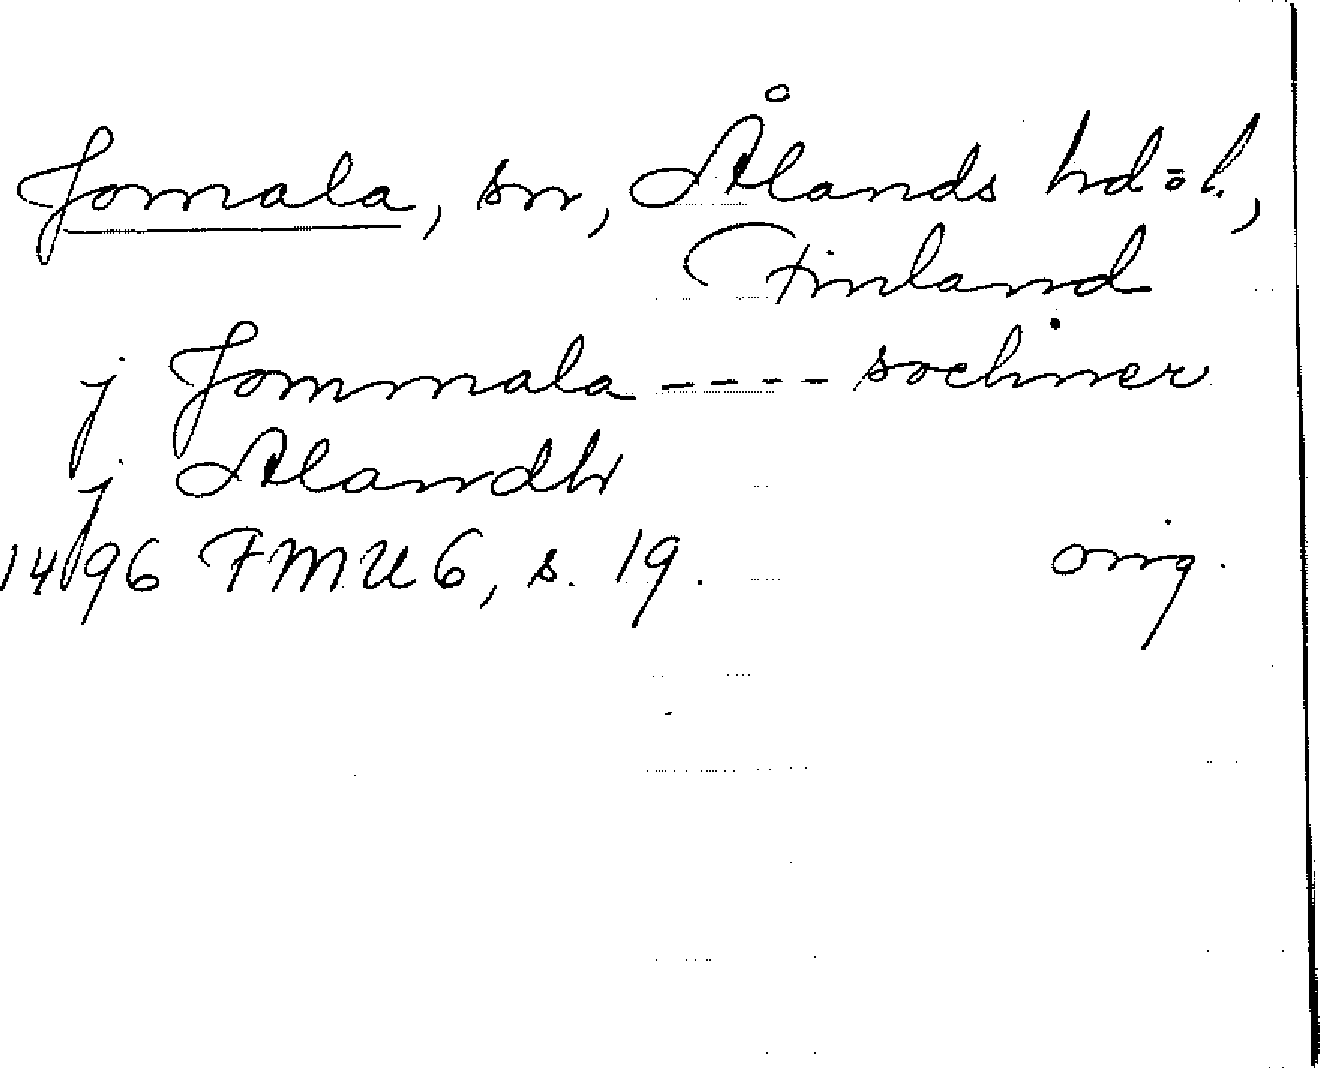 Jomala, sn, Ålands hd o l.,
Finland
j Jommala ---- sochner
j Alandh
1496 FMU 6, s. 19. orig.